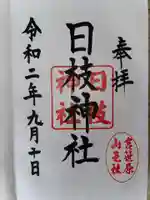 奉拝
日枝神社
日枝神社
令和二年九月十日